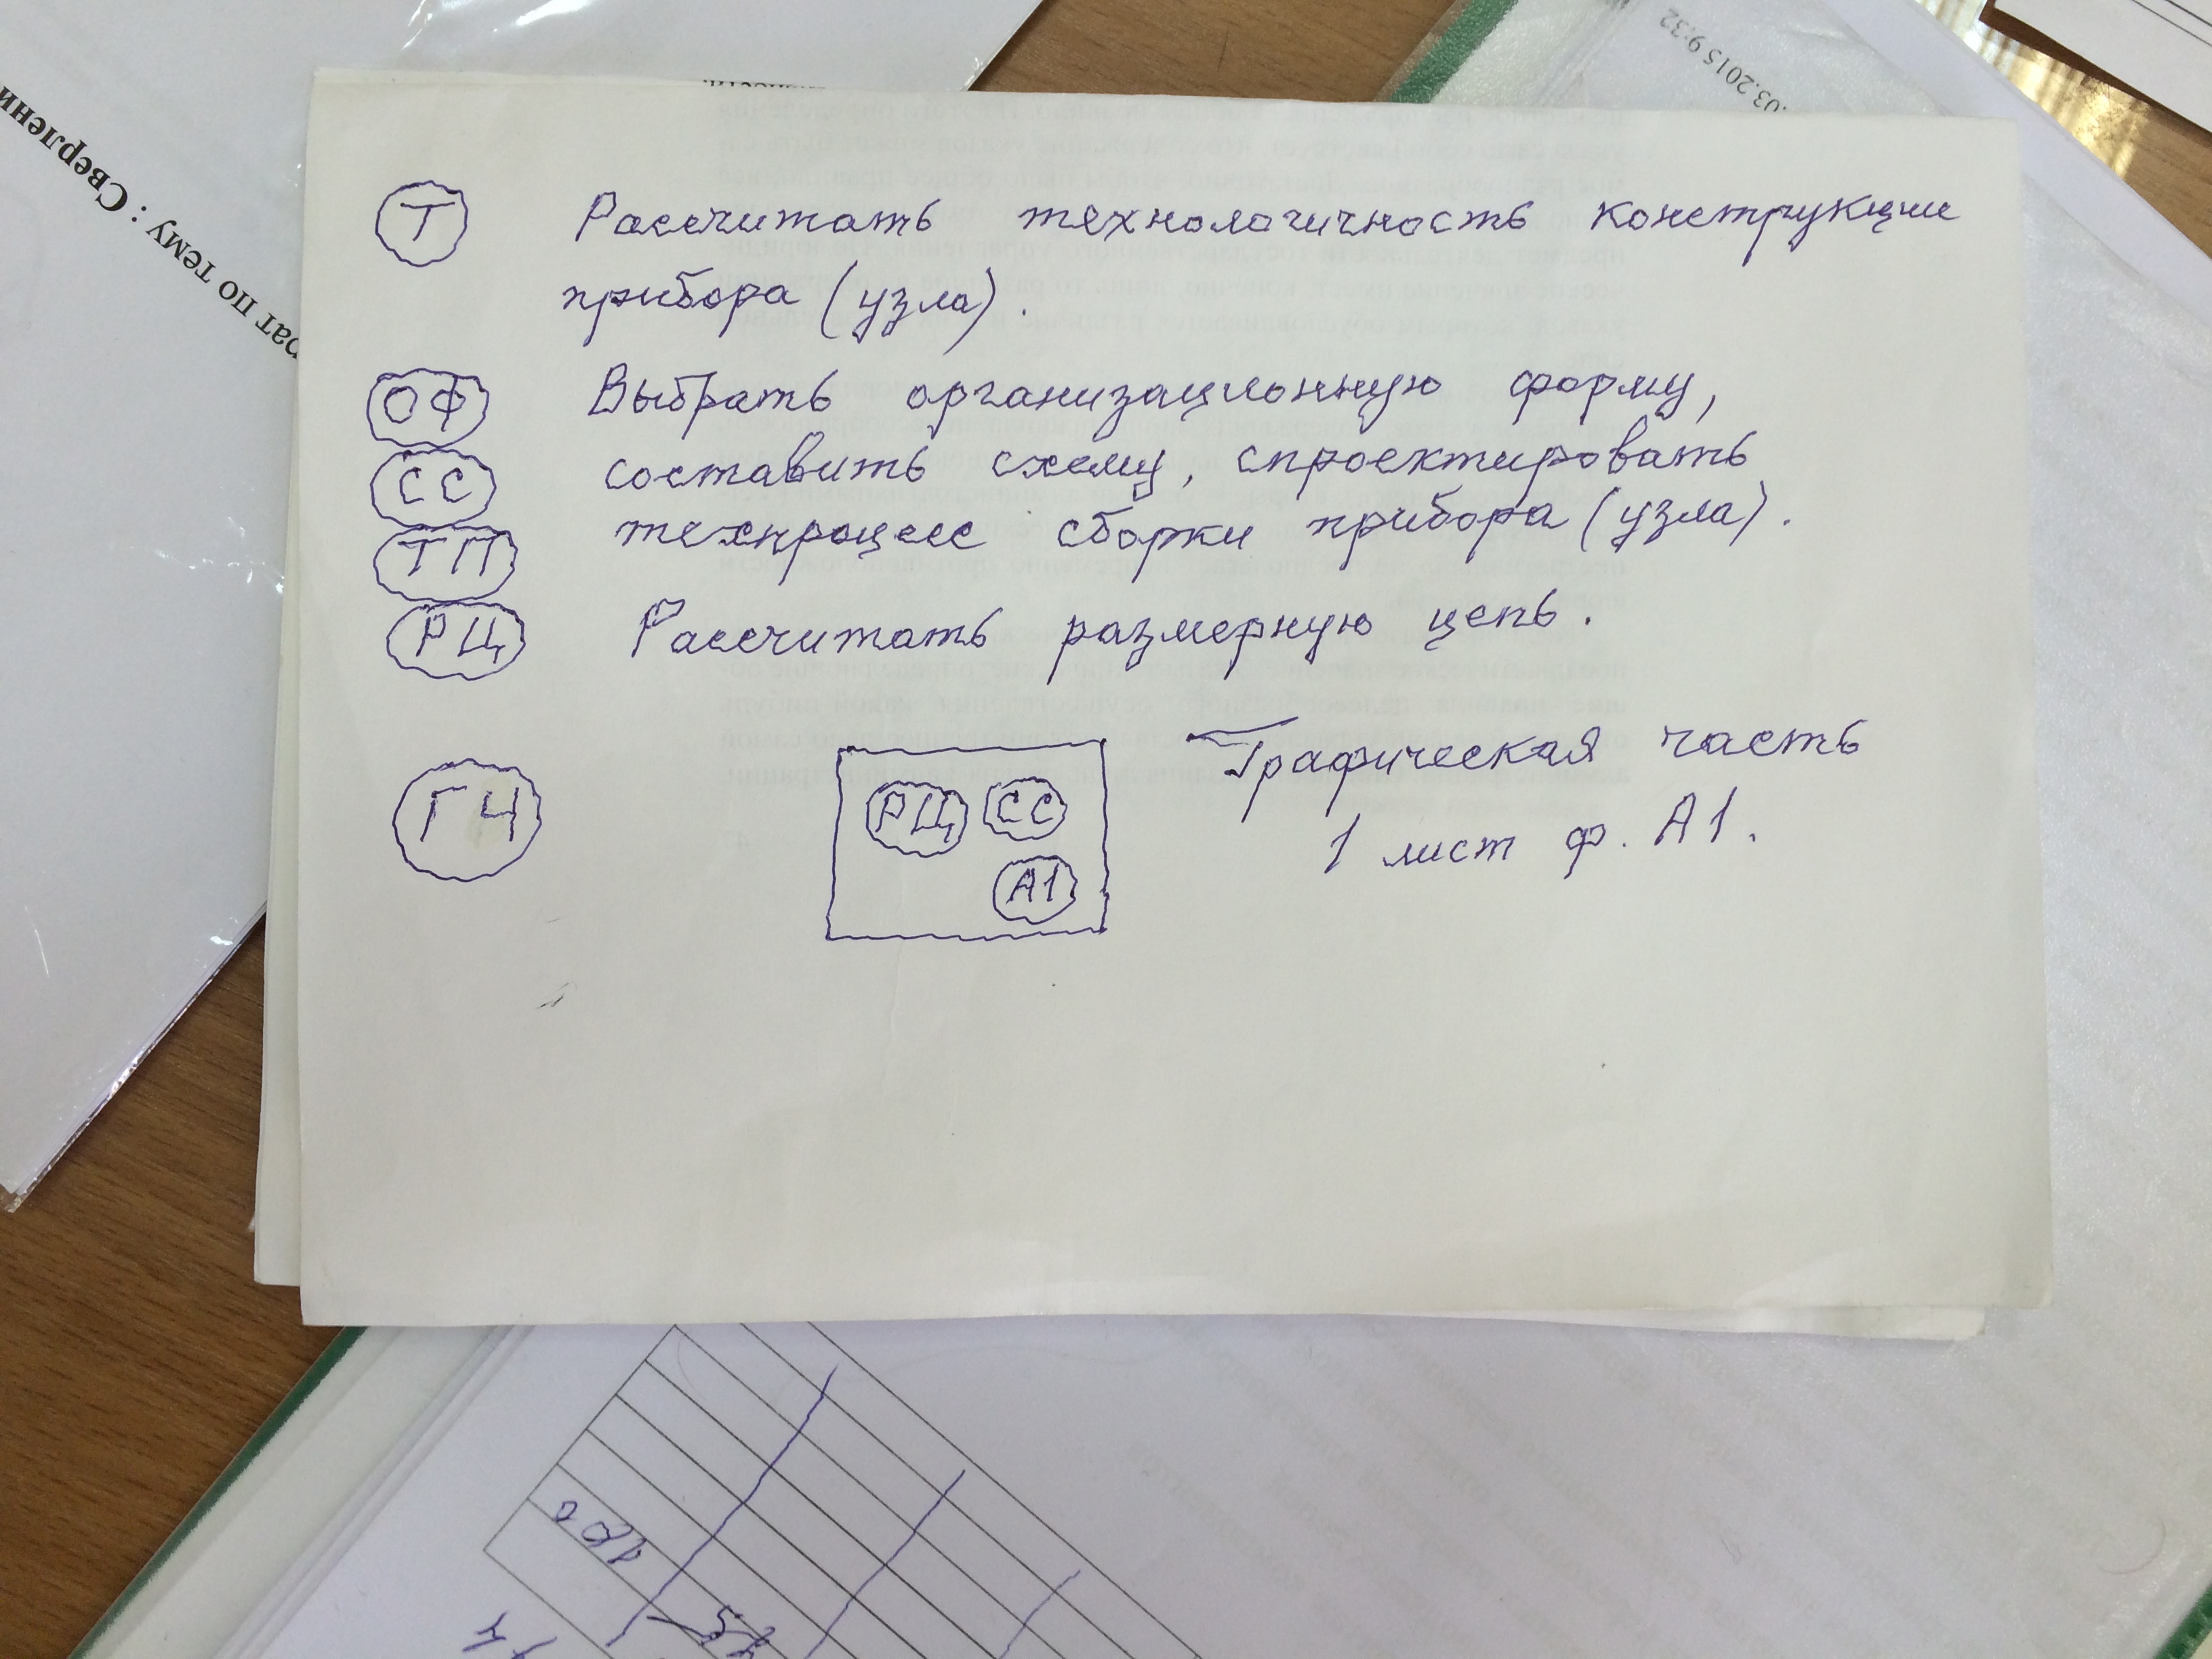 .03.2015 9:32
рат по тему : Сверлени
Т Рассчитать технологичность конструкции
прибора (узла).
ОФ Выбрать организационную форму,
СС составить схему, спроектировать
ТП техпроцесс сборки прибора (узла).
РЦ Рассчитать размерную цепь.
ГЧ РЦ СС Графическая часть
А1 1 лист ф. А1.